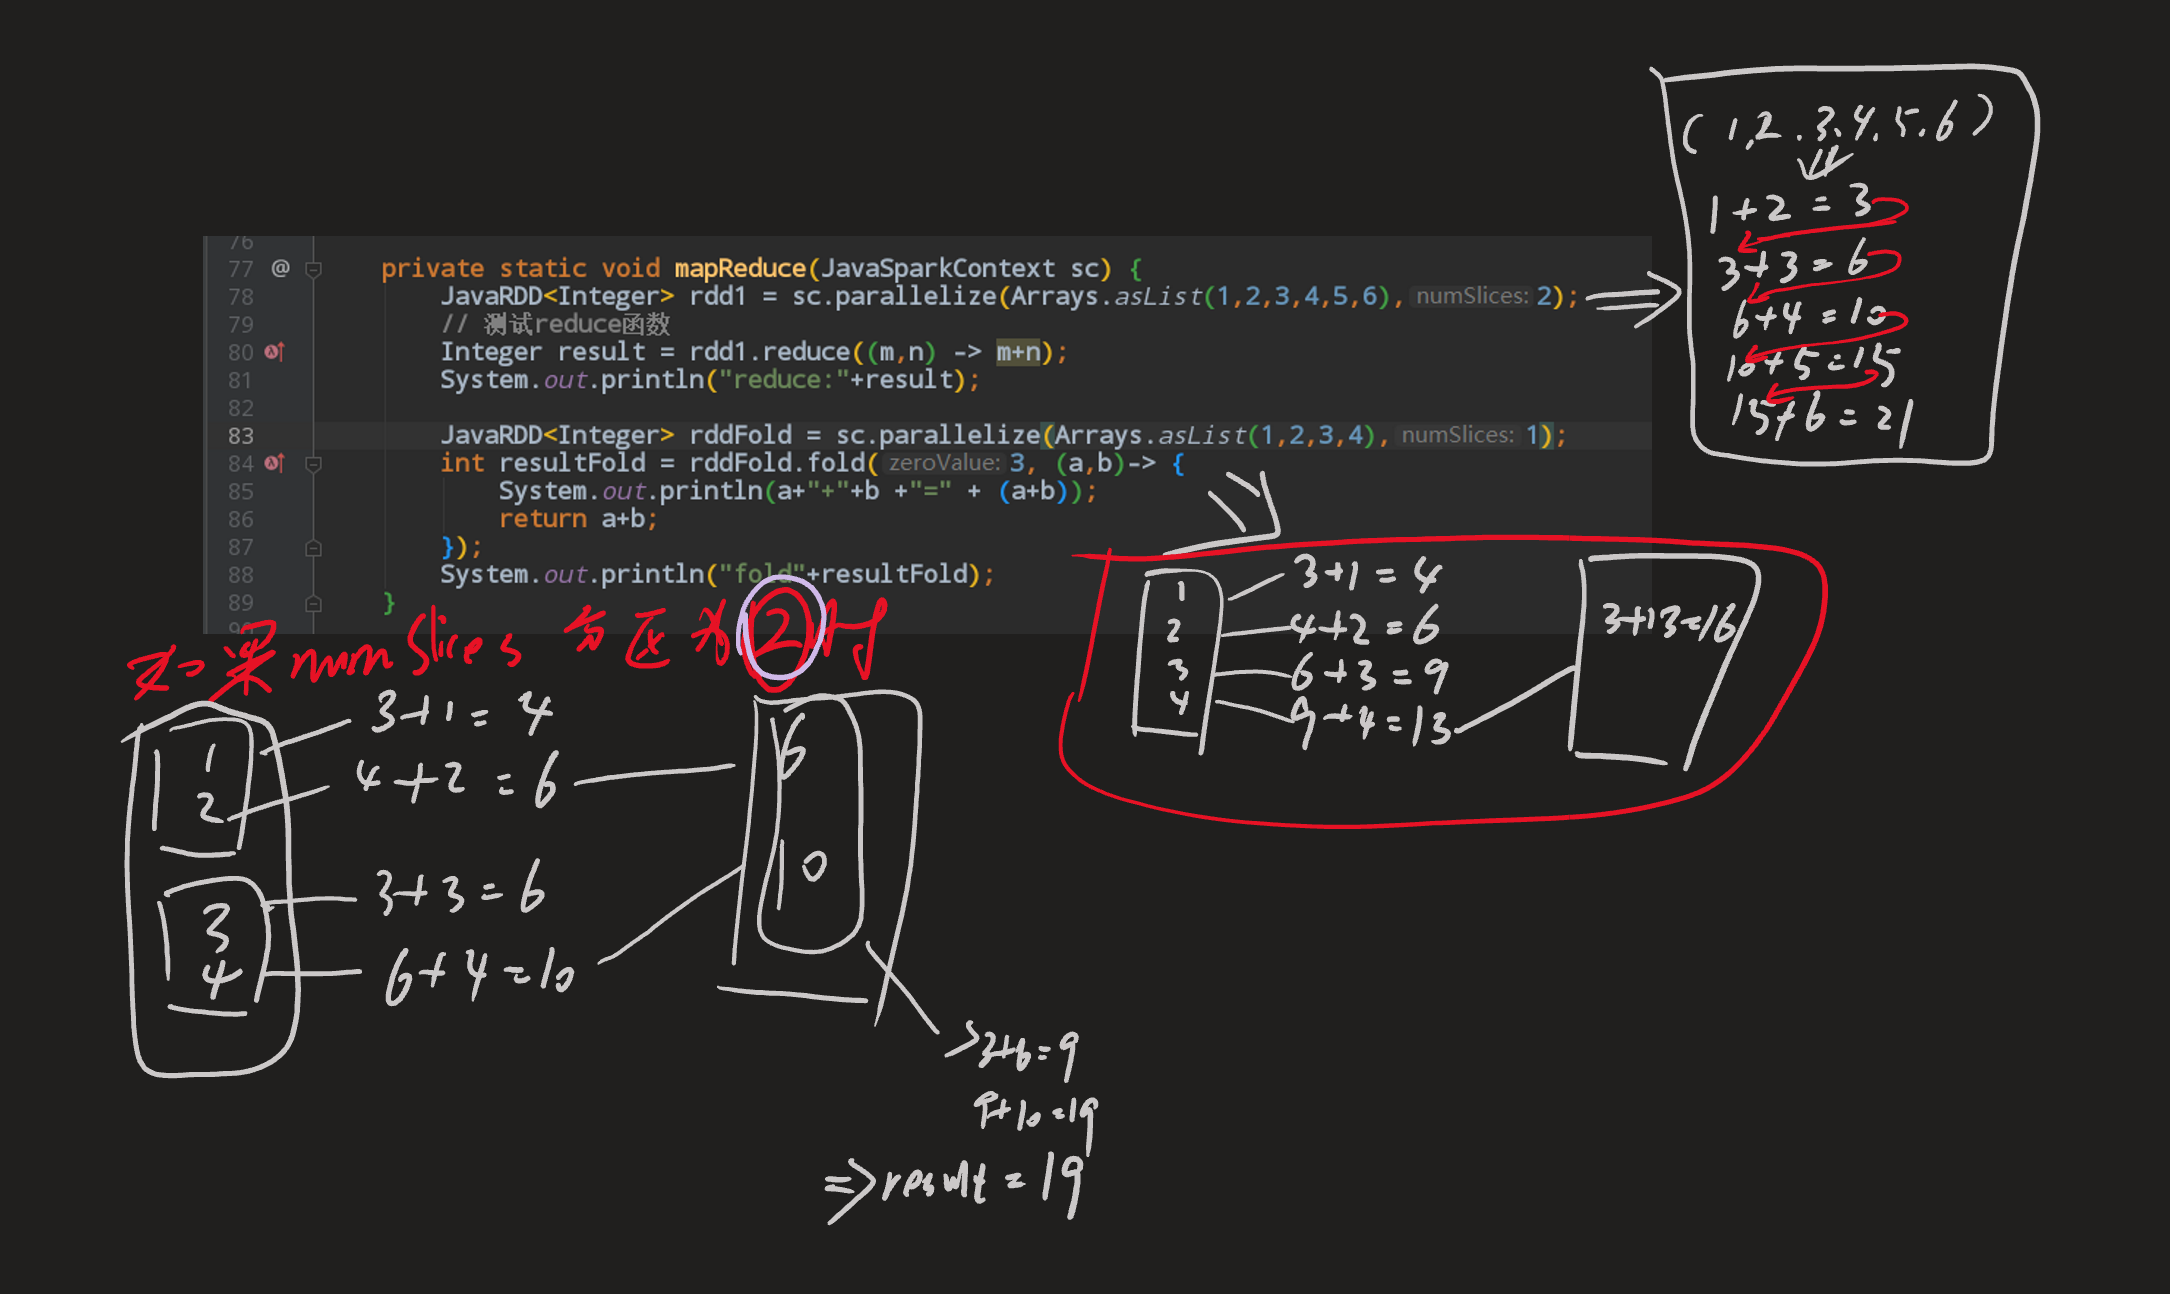 76
77 @ private static void mapReduce(JavaSparkContext sc) {
78 JavaRDD<Integer> rdd1 = sc.parallelize(Arrays.asList(1,2,3,4,5,6), numSlices: 2);
79 // 测试reduce函数
80 Integer result = rdd1.reduce((m,n) -> m+n);
81 System.out.println("reduce:"+result);
82
83 JavaRDD<Integer> rddFold = sc.parallelize(Arrays.asList(1,2,3,4), numSlices: 1);
84 int resultFold = rddFold.fold( zeroValue: 3, (a,b)-> {
85 System.out.println(a+"+"+b +"=" + (a+b));
86 return a+b;
87 });
88 System.out.println("fold"+resultFold);
89 }
90
(1,2.3.4.5.6)
1+2=3
3+3=6
6+4=10
10+5=15
15+6=21
1
2
3
4
3+1=4
4+2=6
6+3=9
9+4=13
3+13=16
如果numSlices分区为2时
1
2
3
4
3+1=4
4+2=6
3+3=6
6+4=10
6
10
3+6=9
9+10=19
=>result=19